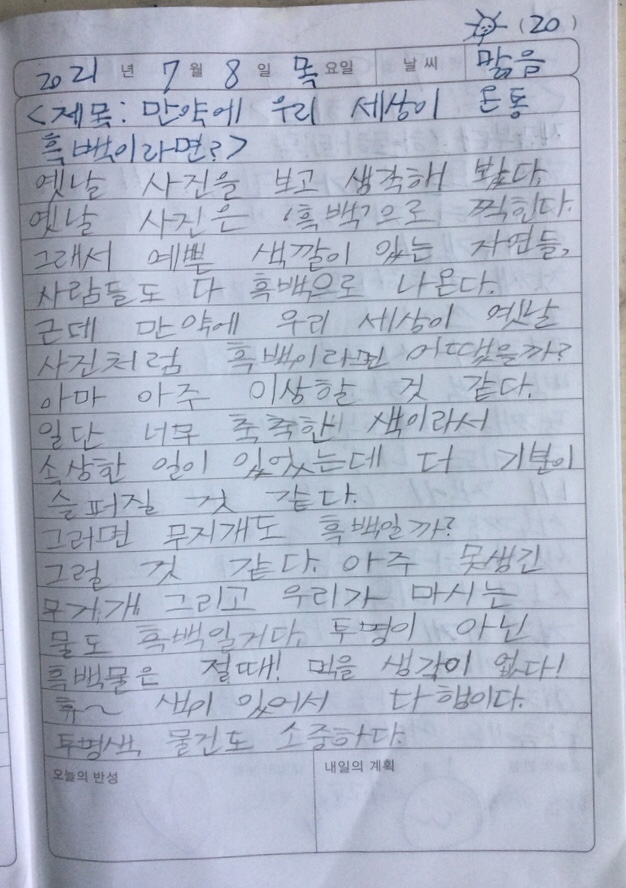 (20)
2021 년 7 월 8 일 목 요일 날 씨 맑음
<제목: 만약에 우리 세상이 온통
흑백이라면?>
옛날 사진을 보고 생각해 봤다.
옛날 사진은 '흑백'으로 찍힌다.
그래서 예쁜 색깔이 있는 자연들,
사람들도 다 흑백으로 나온다.
근데 만약에 우리 세상이 옛날
사진처럼 흑백이라면 어땠을까?
아마 아주 이상할 것 같다.
일단 너무 축축한 색이라서
속상한 일이 있었는데 더 기분이
슬퍼질 것 같다.
그러면 무지개도 흑백일까?
그럴 것 같다. 아주 못생긴
무지개. 그리고 우리가 마시는
물도 흑백일거다. 투명이 아닌
흑백물은 절때! 먹을 생각이 없다!
휴~ 색이 있어서 다행이다.
투명색 물건도 소중하다.
오늘의 반성 내일의 계획